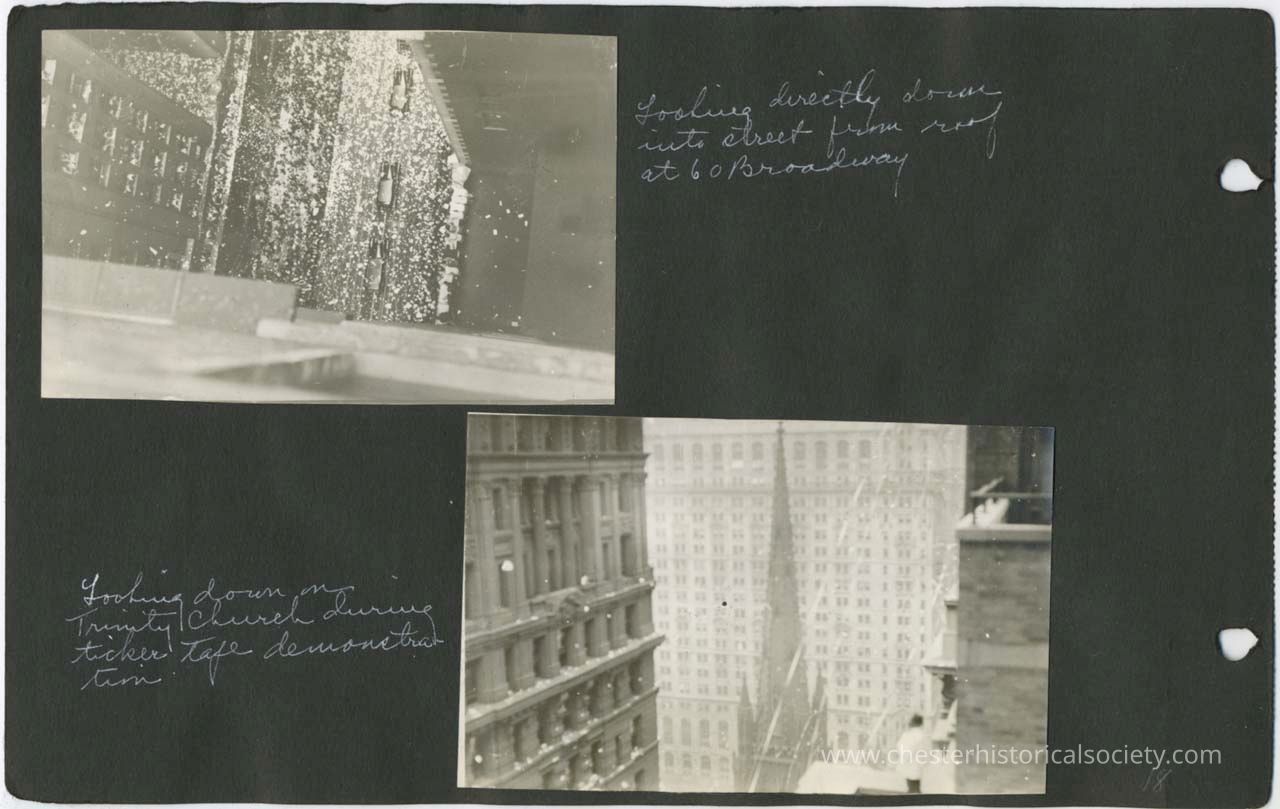 Looking directly down
into street from roof
at 60 Broadway
Looking down on
Trinity Church during
ticker tape demonstra
tion
www.chesterhistoricalsociety.com
18